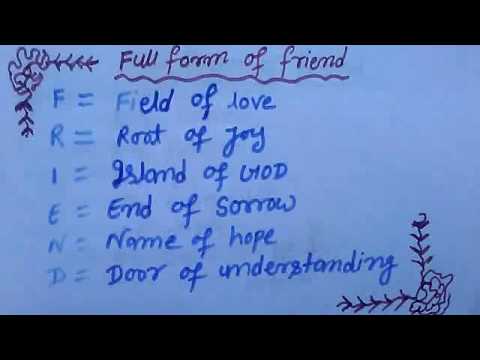 Full form of friend
F = Field of love
R = Root of Joy
I = Island of GOD
E = End of Sorrow
N = Name of hope
D = Door of understanding